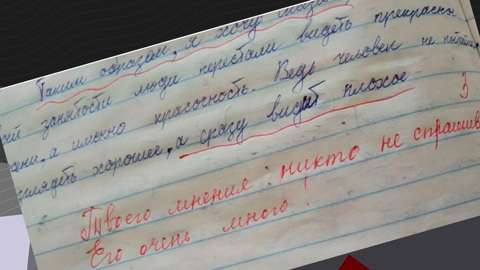 Таким образом, я хочу
занятости люди перестали видеть прекрасн
а именно красочность. Ведь человек не
глядеть хорошее, а сразу видит плохое
3
Твоего мнения никто не спрашив
Его очень много!